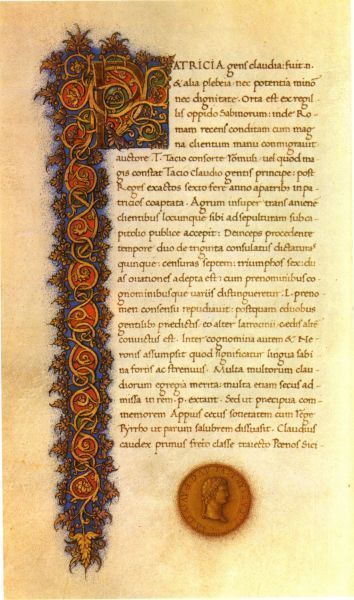 PATRICIA gens claudia: fuit. n.
& alia plebeia nec potentia minor
nec dignitate. Orta est ex regil
lis oppido Sabinorum: inde Ro-
mam recens conditam cum mag
na clientum manu conmigravit
auctore. T. Tacio consorte Romuli: vel quod ma
gis constat Tacio Claudio gentis principe: post
Reges exactos sexto fere anno apatribus in pa-
tricios coaptata: Agrum insuper trans aniene
clientibus locumque sibi ad sepulturam sub ca-
pitolio publice accepit: Deinceps procedente
tempore duo de triginta consulatus dictaturas
quinque: censuras septem: triumphos sex: du
as ovationes adepta est: cum prenominibus co-
gnominibusque variis distingueretur. L. preno
men consensu repudiavit: postquam e duobus
gentilibus preditis eo alter latrocinii: cedis alter
convictus est. Inter cognomina autem & Ne
ronis assumpsit quod significatur lingua sabi
na fortis ac strenuus. Multa multorum clau
diorum egregia merita: multa etiam secus ad
missa in rem. p. extant. Sed ut precipua com
memorem Appius cecus societatem cum Rege
Pyrrho ut parum salubrem dissuasit. Claudius
caudex primus freto classe traiecto Poenos Sici-